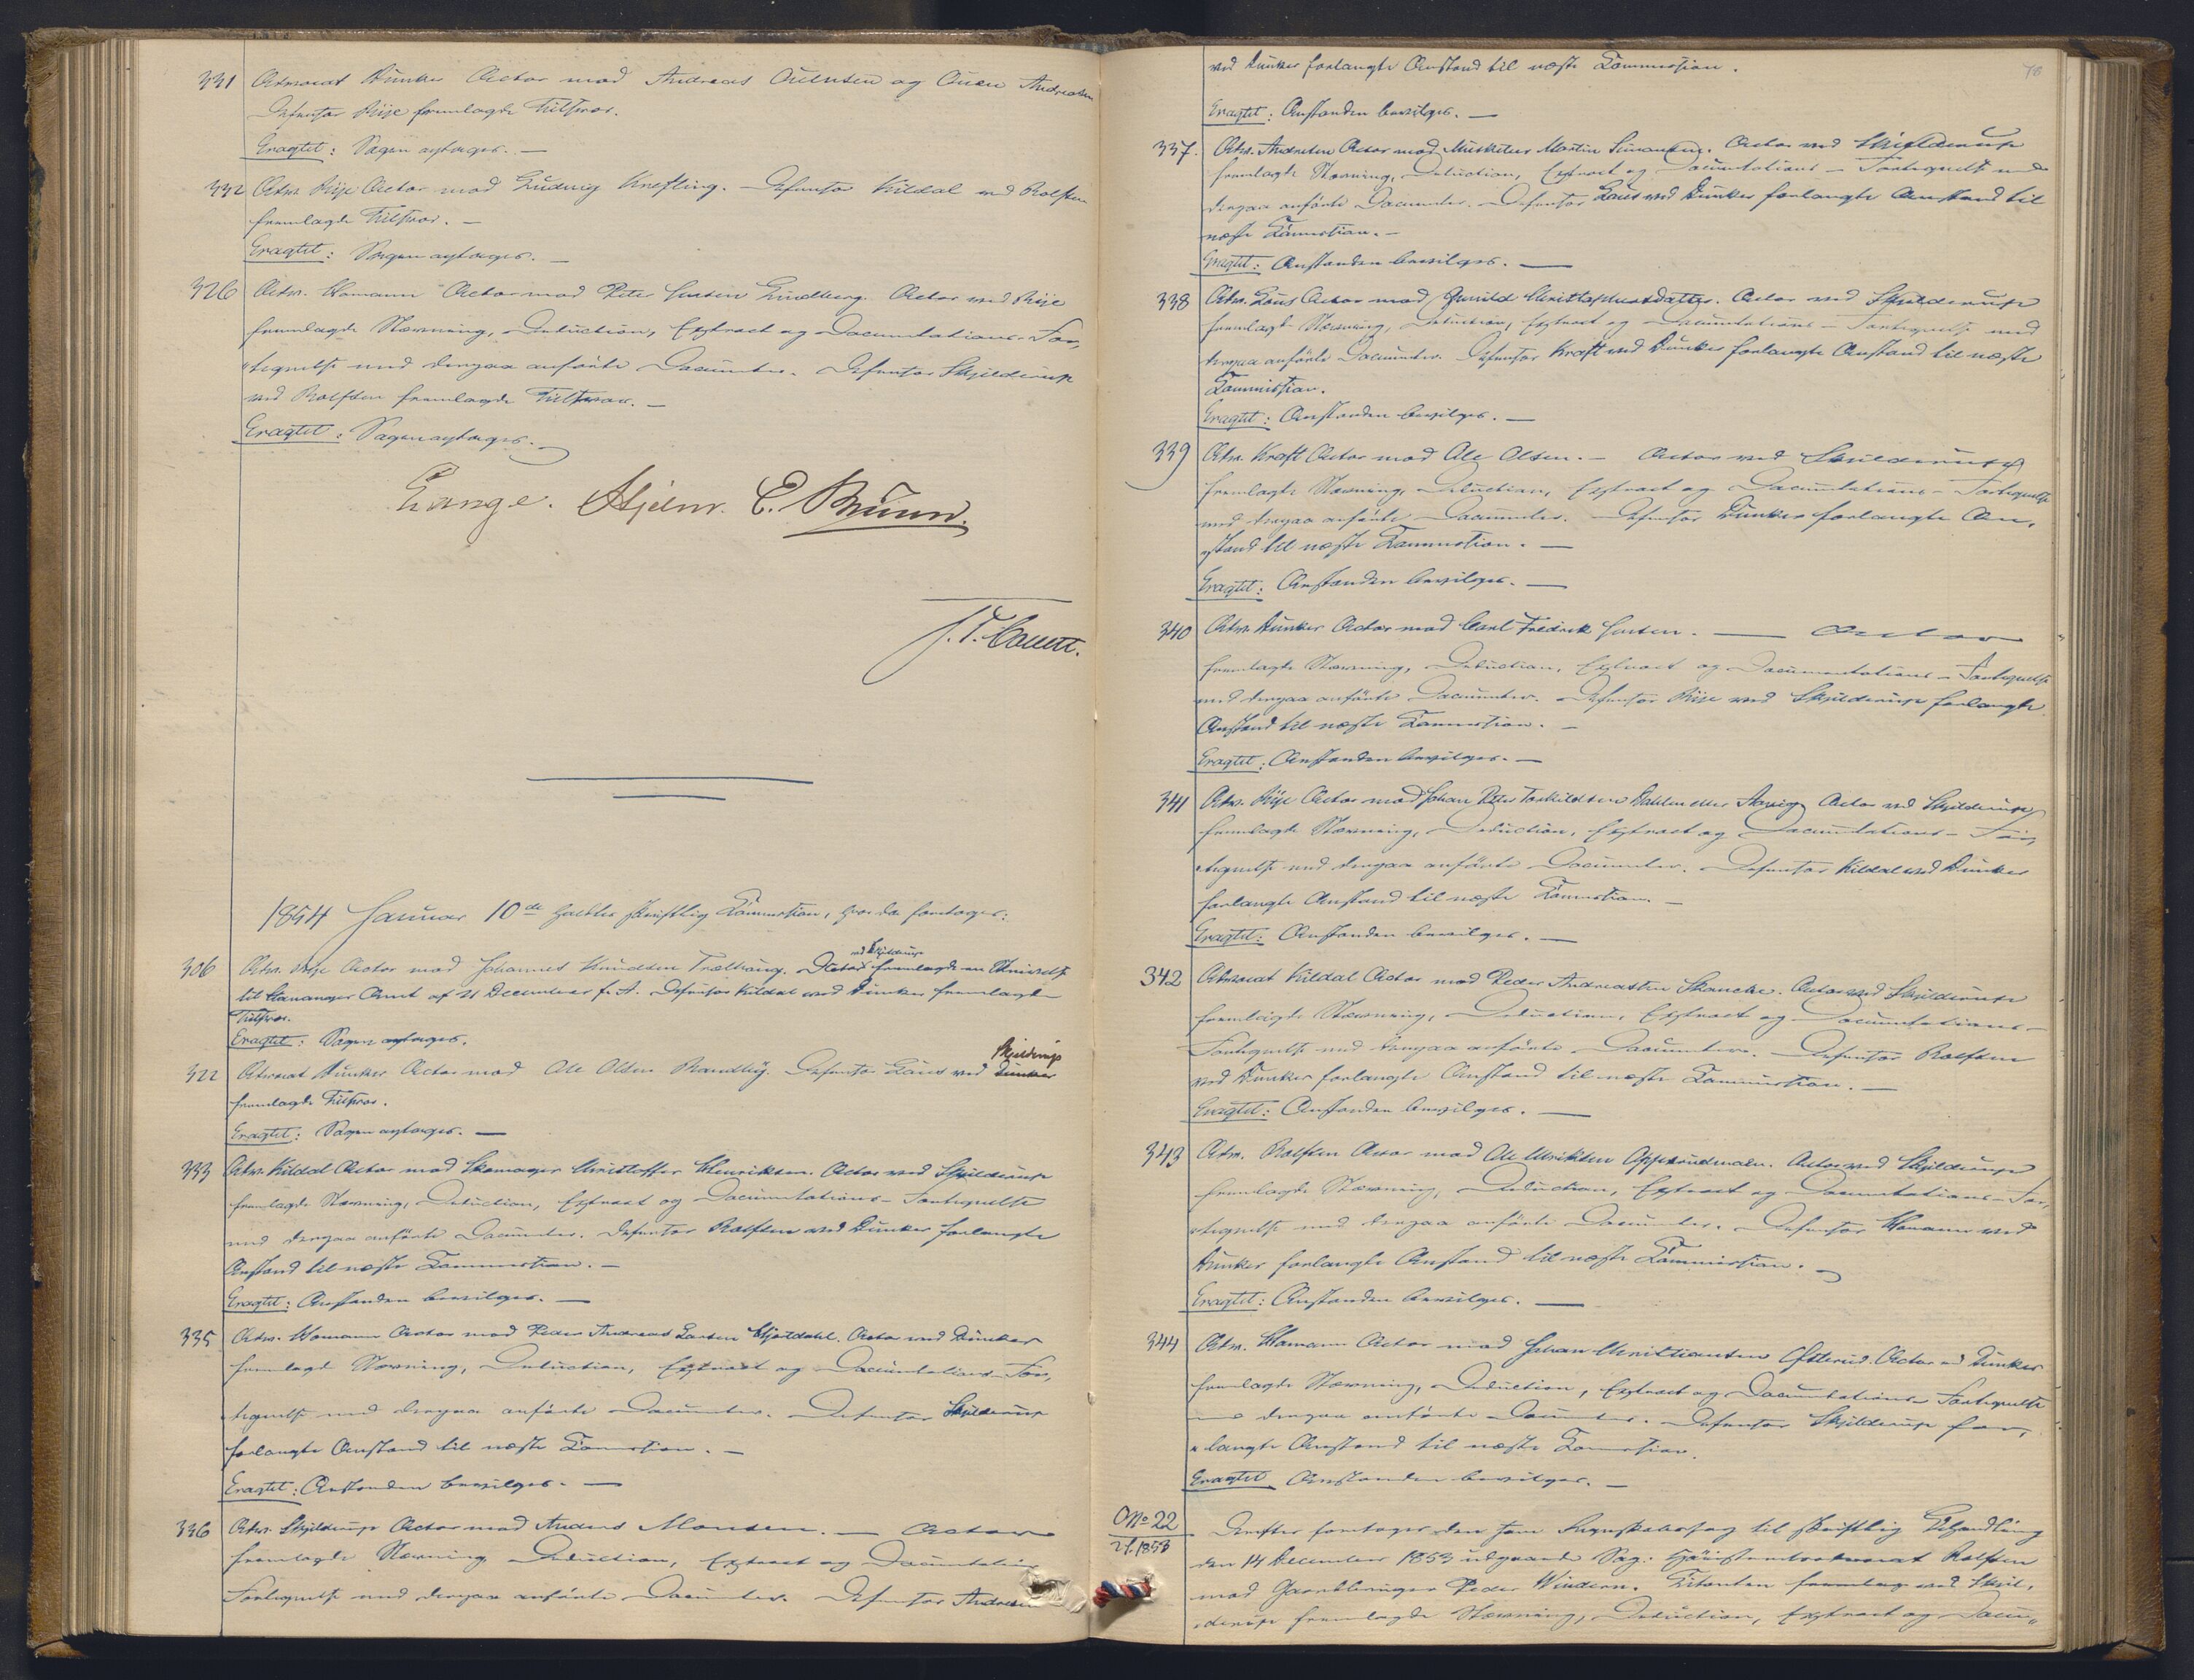 331 Advocat Dunker Actor mod Andreas Auensen og Auen Andreasen
Defensor Rije fremlagde Tilsvar.
Eragtet: Sagen optages. —
332 Adv. Rije Actor mod Ludvig Knefling. Defensor Kildal ved Rolfsen
fremlagde Tilsvar. —
Eragtet: Sagen optages. —
326 Adv. Homann Actor mod Peter Lindberg. Actor ved Rije
fremlagde Stævning, Deduction, Extract og Documentations-For„
„tegnelse med derpaa anførte Documenter. Defensor Skjilderup
ved Rolfsen fremlagde Tilsvar. —
Eragtet: Sagen optages. —
Lange. Hjelm. C. Bruun.
1854 Januar 10de holdtes skriftlig Commission, hvor da foretoges:
306 Adv. Rije Actor mod Johannes Knudsen Trælhaug. Actor ved Skjilderup fremlagde en
til Stavanger Amt af 21 December f. A. Defensor Kildal ved Dunker fremlagde
Tilsvar.
Eragtet: Sagen optages.
322 Advocat Dunker Actor mod Ole Olsen Brandlij. Defensor Laus ved Dunker Skjilderup
fremlagde Tilsvar.
Eragtet: Sagen optages. —
333 Adv. Kildal Actor mod Skomager Christoffer Henriksen. Actor ved Skjilderup
fremlagde Stævning, Deduction, Extract og Documentations-Fortegnelse
med derpaa anførte Documenter. Defensor Rolfsen ved Dunker forlangte
Anstand til næste Commission. —
Eragtet: Anstanden bevilges. —
335 Adv. Homann Actor mod Peder Andreas Larsen Hjortdahl. Actor ved Dunker
fremlagde Stævning, Deduction, Extract og Documentations-For„
„tegnelse med derpaa anførte Documenter. Defensor Skjilderup
forlangte Anstand til næste Commission. —
Eragtet: Anstanden bevilges. —
336 Adv. Skjilderup Actor mod Anders Monsen. — Actor
fremlagde Stævning, Deduction, Extract og Documentations
Fortegnelse med derpaa anførte Documenter. Defensor Andresen
78
ved Dunker forlangte Anstand til næste Commission.
Eragtet: Anstanden bevilges. —
337. Adv. Andresen Actor mod Musketeer Martin Simonsen. Actor ved Skjilderup
fremlagde Stævning, Deduction, Extract og Documentations-Fortegnelse med
derpaa anførte Documenter. Defensor Laus ved Dunker forlangte Anstand til
næste Commission. —
Eragtet: Anstanden bevilges. —
338 Adv. Laus Actor mod Gunild Christophersdatter. Actor ved Skjilderup
fremlagde Stævning, Deduction, Extract og Documentations-Fortegnelse med
derpaa anførte Documenter. Defensor Kraft ved Dunker forlangte Anstand til næste
Commission.
Eragtet: Anstanden bevilges. —
339 Adv. Kraft Actor mod Ole Olsen. — Actor ved Skjilderup
fremlagde Stævning, Deduction, Extract og Documentations-Fortegnelse
med derpaa anførte Documenter. Defensor Dunker forlangte An„
„stand til næste Commission. —
Eragtet: Anstanden bevilges. —
340 Adv. Dunker Actor mod Carl Fredrik. — Actor
fremlagde Stævning, Deduction, Extract og Documentations-Fortegnelse
med derpaa anførte Documenter. Defensor Rije ved Skjilderup forlangte
Anstand til næste Commission. —
Eragtet: Anstanden bevilges. —
341 Adv. Rije Actor mod Johan Peter Torkildsen Dahlen eller. Actor ved Skjilderup
fremlagde Stævning, Deduction, Extract og Documentations-For„
„tegnelse med derpaa anførte Documenter. Defensor Kildal ved Dunker
forlangte Anstand til næste Commission. —
Eragtet: Anstanden bevilges. —
342 Advocat Kildal Actor mod Peder Andreassen Skancke. Actor ved Skjilderup
fremlagde Stævning, Deduction, Extract og Documentations-
Fortegnelse med derpaa anførte Documenter. Defensor Rolfsen
ved Dunker forlangte Anstand til næste Commission. —
Eragtet: Anstanden bevilges. —
343 Adv. Rolfsen Actor mod Ole Eriksen. Actor ved Skjilderup
fremlagde Stævning, Deduction, Extract og Documentations-For„
„tegnelse med derpaa anførte Documenter. Defensor Homann ved
Dunker forlangte Anstand til næste Commission. —
Eragtet: Anstanden bevilges. —
344 Adv. Homann Actor mod Johan Christiansen Østerud. Actor ved Dunker
fremlagde Stævning, Deduction, Extract og Documentations Fortegnelse
med derpaa anførte Documenter. Defensor Skjilderup for„
„langte Anstand til næste Commission.
Eragtet Anstanden bevilges. —
No 22
1853
Derefter foretoges den som til skriftlig Behandling
den 14 December 1853 udgaaede Sag: Høiesteretsadvocat Rolfsen
mod Gaardbruger Peder Windern. Citanten ved Skjil„
„derup fremlagde Stævning, Deduction, Extract og Docu„